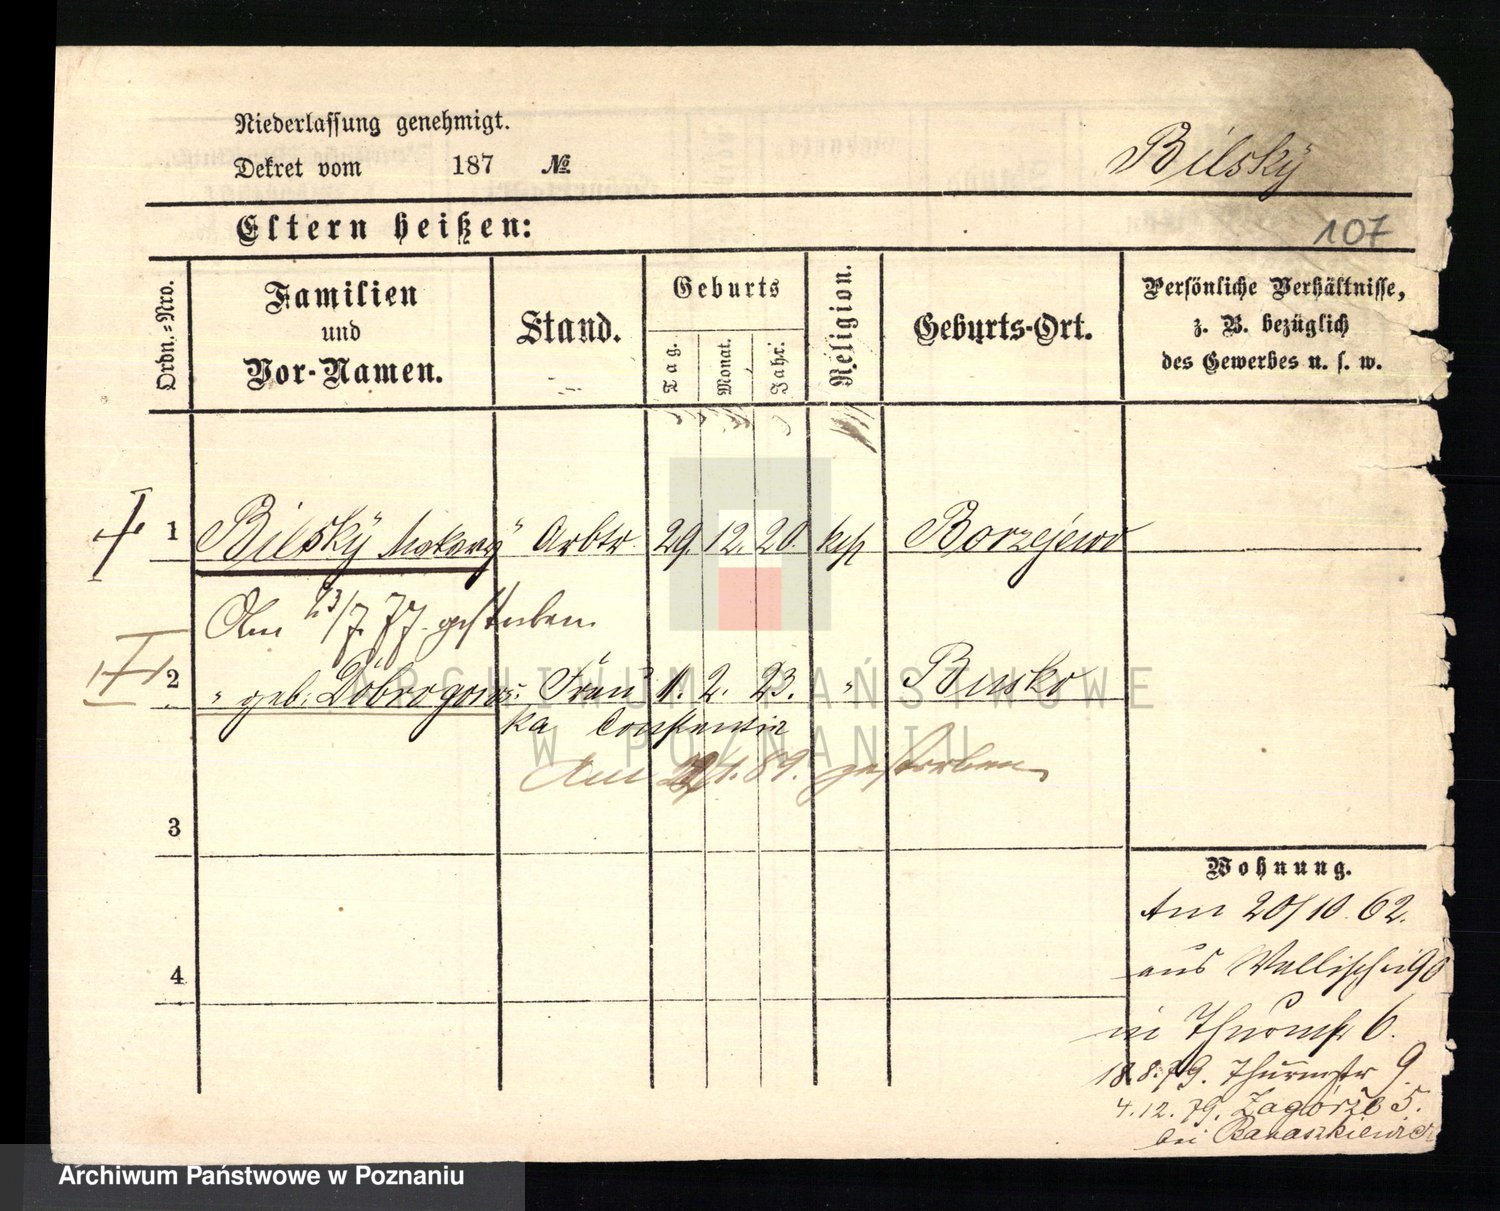 Niederlassung genehmigt.
Dekret vom 187 №
Bilsky
Eltern heißen:
107
Ordn.-Nro.
Familien
und
Vor-Namen.
Stand.
Geburts
Tag.
Monat.
Jahr.
Religion.
Geburts-Ort.
Persönliche Verhältnisse,
z. B. bezüglich
des Gewerbes u. s. w.
1 Bilsky Makary Arbtr. 29. 12. 20. kth Borzejewo
Am 23/7. 77. gestorben
2 " geb. Dobrogows- Frau 1. 2. 23. " Busko
ka Constantia
Am 1. 89. gestorben
3
4
Wohnung.
Am 20/10. 62.
aus Wallischei 90
in Thurmstr 6.
18.8.79. Thurmstr 9.
4.12.79. Zagórze 5.
bei Banaszkiewicz
ARCHIWUM PAŃSTWOWE
W POZNANIU
Archiwum Państwowe w Poznaniu